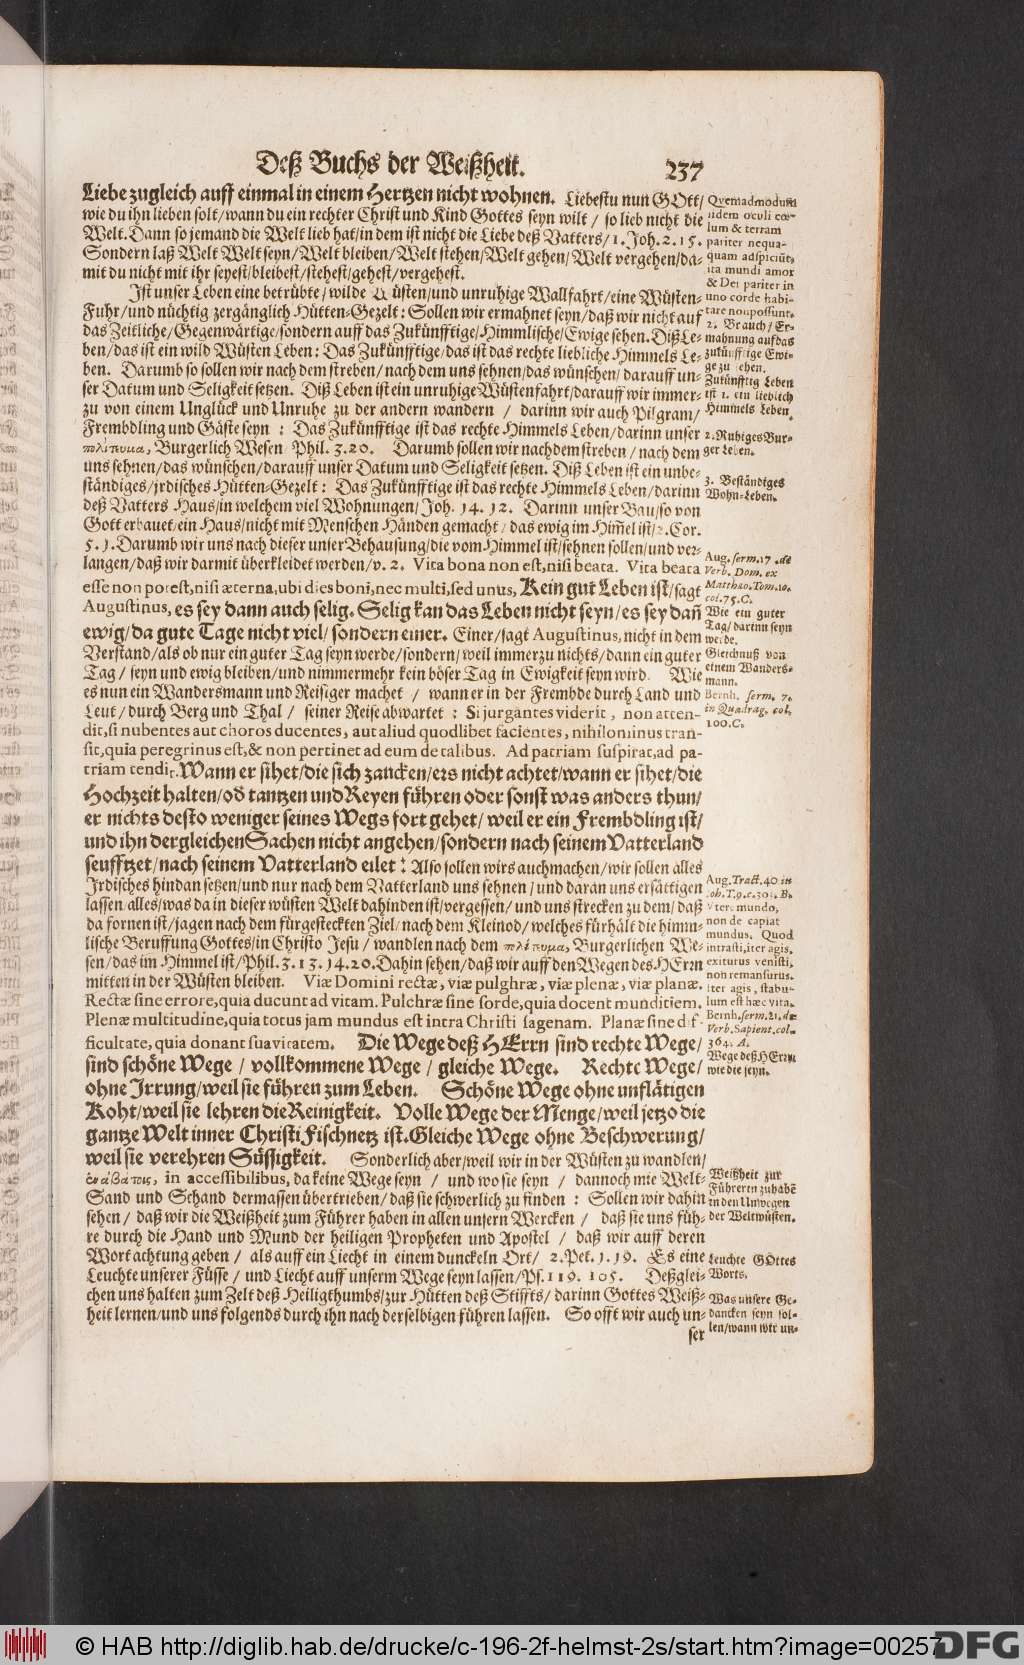 Deß Buchs der Weißheit. 237
Liebe zugleich auff einmal in einem Hertzen nicht wohnen. Liebestu nun GOtt/
wie du ihn lieben solt/wann du ein rechter Christ und Kind Gottes seyn wilt / so lieb nicht die
Welt. Dann so jemand die Welt lieb hat/in dem ist nicht die Liebe deß Vatters/1. Joh. 2. 15.
Sondern laß Welt Welt seyn/Welt bleiben/Welt stehen/Welt gehen/Welt vergehen/da-
mit du nicht mit ihr seyest/bleibest/stehest/gehest/vergehest.
Ist unser Leben eine betrübte/ wilde Wüsten/und unruhige Wallfahrt/eine Wüsten-
Fuhr/und nüchtig zergänglich Hütten-Gezelt: Sollen wir ermahnet seyn/daß wir nicht auf
das Zeitliche/Gegenwärtige/sondern auff das Zukünfftige/Himmlische/Ewige sehen. Diß Le-
ben/das ist ein wild Wüsten Leben: Das Zukünfftige/das ist das rechte liebliche Himmels Le-
ben. Darumb so sollen wir nach dem streben/nach dem uns sehnen/das wünschen/ darauff un-
ser Datum und Seligkeit setzen. Diß Leben ist ein unruhige Wüstenfahrt/darauff wir immer-
zu von einem Unglück und Unruhe zu der andern wandern / darinn wir auch Pilgram/
Frembdling und Gäste seyn : Das Zukünfftige ist das rechte Himmels Leben/darinn unser
Burgerlich Wesen Phil. 3. 20. Darumb sollen wir nachdem streben / nach dem
uns sehnen/das wünschen/darauff unser Datum und Seligkeit setzen. Diß Leben ist ein unbe-
ständiges/jrdisches Hütten-Gezelt: Das Zukünfftige ist das rechte Himmels Leben/darinn
deß Vatters Haus/in welchem viel Wohnungen/Joh. 14. 12. Darinn unser Bau/so von
Gott erbauet/ein Haus/nicht mit Menschen Händen gemacht/ das ewig im Him̃el ist/2. Cor.
5. 1. Darumb wir uns nach dieser unser Behausung/die vom Himmel ist/sehnen sollen/und ver-
langen/daß wir darmit überkleidet werden/v. 2. Vita bona non est, nisi beata. Vita beata
esse non potest, nisi æterna, ubi dies boni, nec multi, sed unus, Kein gut Leben ist/sagt
Augustinus, es sey dann auch selig. Selig kan das Leben nicht seyn/es sey dañ
ewig/da gute Tage nicht viel/sondern einer. Einer/sagt Augustinus, nicht in dem
Verstand/als ob nur ein guter Tag seyn werde/sondern/weil immerzu nichts/dann ein guter
Tag / seyn und ewig bleiben/und nimmermehr kein böser Tag in Ewigkeit seyn wird. Wie
es nun ein Wandersmann und Reisiger machet / wann er in der Frembde durch Land und
Leut/durch Berg und Thal / seiner Reise abwartet : Si jurgantes viderit, non atten-
dit, si nubentes aut choros ducentes, aut aliud quodlibet facientes, nihilominus tran-
sit, quia peregrinus est, & non pertinet ad eum de talibus. Ad patriam suspirat, ad pa-
triam tendit. Wann er sihet/die sich zancken/ers nicht achtet/wann er sihet/die
Hochzeit halten/od̃ tantzen und Reyen führen oder sonst was anders thun/
er nichts desto weniger seines Wegs fort gehet/weil er ein Frembdling ist/
und ihn dergleichen Sachen nicht angehen/sondern nach seinem Vatterland
seufftzet/nach seinem Vatterland eilet: Also sollen wirs auch machen/wir sollen alles
Irdisches hindan setzen/und nur nach dem Vatterland uns sehnen / und daran uns ersättigen
lassen alles/was da in dieser wüsten Welt dahinden ist/vergessen/ und uns strecken zu dem/daß
da fornen ist/jagen nach dem fürgesteckten Ziel/nach dem Kleinod/welches fürhält die himm-
lische Beruffung Gottes/in Christo Jesu / wandlen nach dem Burgerlichen We-
sen/das im Himmel ist/Phil. 3. 13. 14. 20. Dahin sehen/daß wir auff den Wegen des HErrn
mitten in der Wüsten bleiben. Viæ Domini rectæ, viæ pulghræ, viæ plenæ, viæ planæ.
Rectæ sine errore, quia ducunt ad vitam. Pulchræ sine sorde, quia docent munditiem.
Plenæ multitudine, quia totus jam mundus est intra Christi sagenam. Planæ sine dif-
ficultate, quia donant suavitatem. Die Wege deß HErrn sind rechte Wege/
sind schöne Wege / vollkommene Wege / gleiche Wege. Rechte Wege/
ohne Irrung/weil sie führen zum Leben. Schöne Wege ohne unflätigen
Koht/weil sie lehren die Reinigkeit. Volle Wege der Menge/weil jetzo die
gantze Welt inner Christi Fischnetz ist. Gleiche Wege ohne Beschwerung/
weil sie verehren Süssigkeit. Sonderlich aber/weil wir in der Wüsten zu wandlen/
in accessibilibus, da keine Wege seyn / und wo sie seyn / dannoch mit Welt-
Sand und Schand dermassen übertrieben/daß sie schwerlich zu finden : Sollen wir dahin
sehen/ daß wir die Weißheit zum Führer haben in allen unsern Wercken / daß sie uns füh-
re durch die Hand und Mund der heiligen Propheten und Apostel / daß wir auff deren
Wort achtung geben / als auff ein Liecht in einem dunckeln Ort/ 2. Pet. 1. 19. Es eine
Leuchte unserer Füsse / und Liecht auff unserm Wege seyn lassen/Ps. 119. 105. Deßglei-
chen uns halten zum Zelt deß Heiligthumbs/zur Hütten deß Stiffts/ darinn Gottes Weiß-
heit lernen/und uns folgends durch ihn nach derselbigen führen lassen. So offt wir auch un-
ser
Qvemadmodum
iidem oculi cœ-
lum & terram
pariter nequa-
quam adspiciũt,
ita mundi amor
& Dei pariter in
uno corde habi-
tare non possunt.
2. Brauch/Er-
mahnung auf das
zukünfftige Ewi-
ge zu sehen.
Zukünfftig Leben
ist 1. ein lieblich
Himmels Leben.
2. Ruhiges Bur-
ger Leben.
3. Beständiges
Wohn-Leben.
Aug. serm. 17. de
Verb. Dom. ex
Matthæo. Tom. 10.
col. 75. C.
Wie ein guter
Tag/darinn seyn
werde.
Gleichnuß von
einem Wanders-
mann.
Bernh. serm. 7.
in Quadrag. col.
100. C.
Aug. Tract. 40 in
Utere mundo,
non te capiat
mundus. Quod
intrasti, iter agis,
exiturus venisti,
non remansurus.
iter agis, stabu-
lum est hæc vita.
Bernh. serm. 21. de
Verb. Sapient. col.
364. A.
Wege deß HErrn
wie die seyn.
Weißheit zur
Führerin zu habẽ
in den Unwegen
der Weltwüsten.
Leuchte GOttes
Worts.
Was unsere Ge-
dancken seyn sol-
len/wann wir un-
© HAB http://diglib.hab.de/drucke/c-196-2f-helmst-2s/start.htm?image=00257
DFG